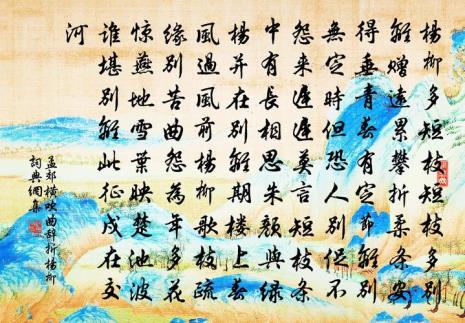 楊柳多短枝短枝多別
離贈遠累攀折柔条安
得垂青春有定節離別
無定時但恐人別促不
怨来遲遲莫言短枝条
中有長相思朱顔與緑
楊并在別離期楼上春
風過風前楊柳歌枝疏
緣別苦曲怨為年多花
惊燕地雪葉映楚池波
谁堪別離此征戍在交
河
孟郊橫吹曲辞折楊柳
詞典網集